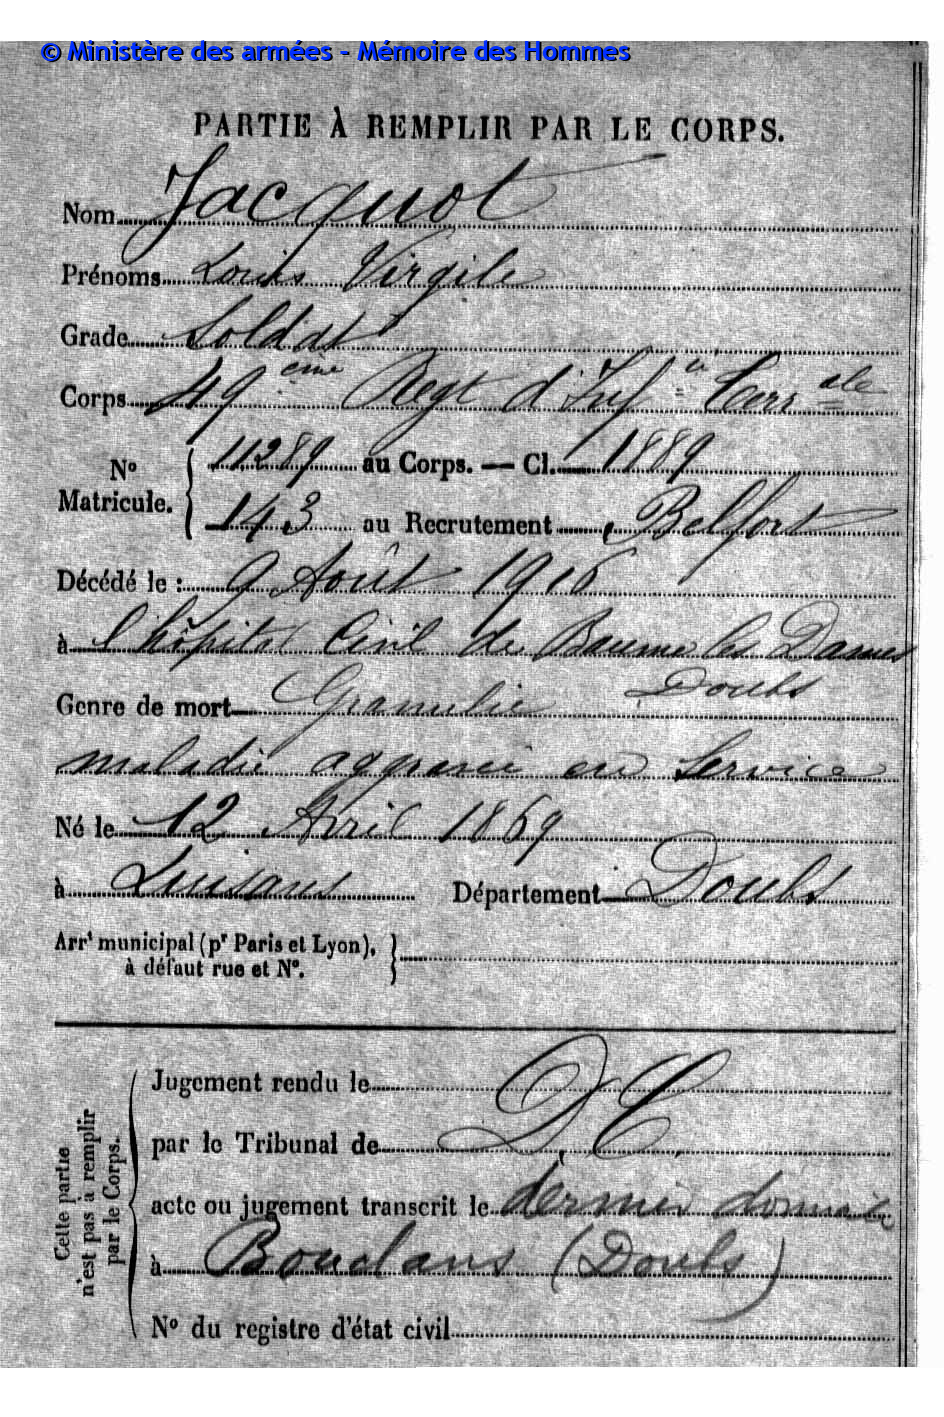 © Ministère des armées - Mémoire des Hommes
PARTIE À REMPLIR PAR LE CORPS.
Nom Jacquot
Prénoms Louis Virgile
Grade Soldat
Corps 49ème Regt d'Infie Terrale
No Matricule. { 11289 au Corps. — Cl. 1889
143 au Recrutement Belfort
Décédé le : 9 Août 1916
à l'hôpital Civil de Baume les Dames
Doubs
Genre de mort Granulie
maladie aggravée en Service
Né le 12 Avril 1869
à Luisans Département Doubs
Arrt municipal (pr Paris et Lyon), à défaut rue et No. }
Cette partie n'est pas à remplir par le Corps.
Jugement rendu le
par le Tribunal de D. C.
acte ou jugement transcrit le dernier domicile
à Bouclans (Doubs)
No du registre d'état civil